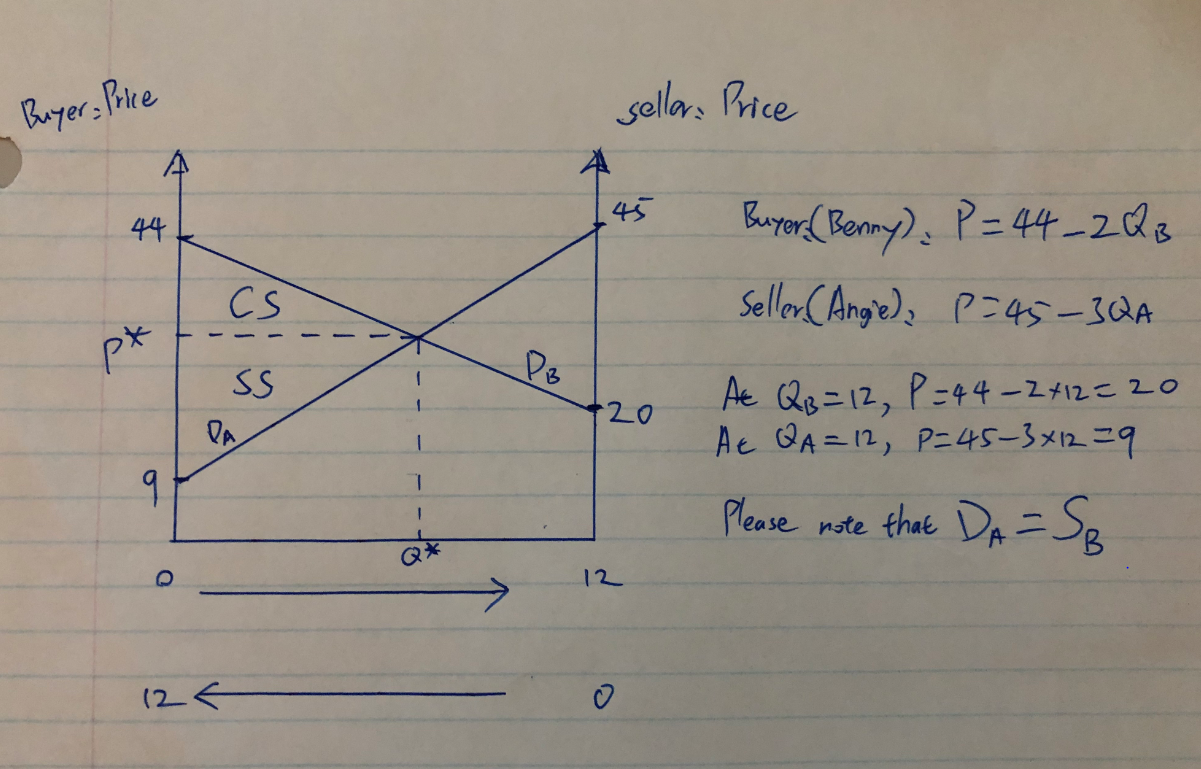 Buyer: Price
seller: Price
44
45
CS
P*
SS
DA
PB
20
9
Q*
0
12
12
0
Buyer(Benny): P=44-2QB
Seller(Angie): P=45-3QA
At QB=12, P=44-2×12=20
At QA=12, P=45-3×12=9
Please note that DA=SB